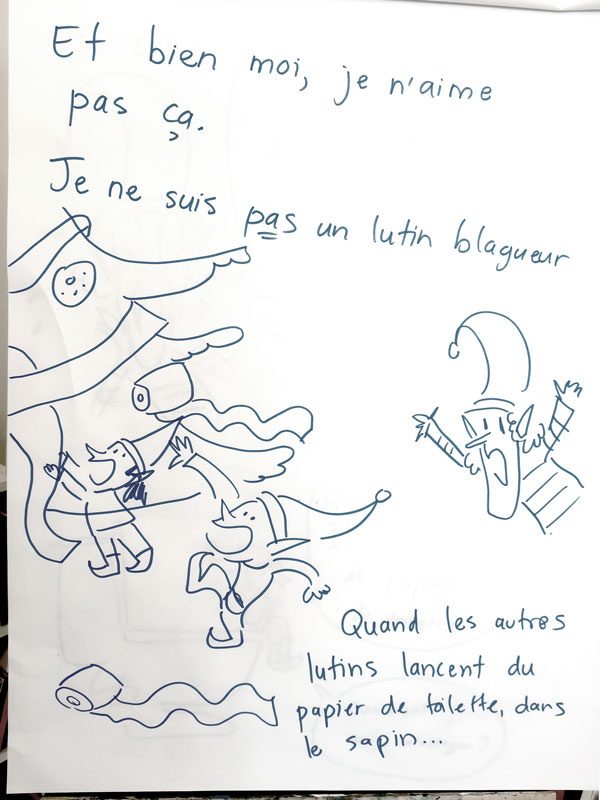 Et bien moi, je n'aime
pas ça.
Je ne suis pas un lutin blagueur
Quand les autres
lutins lancent du
papier de toilette, dans
le sapin...